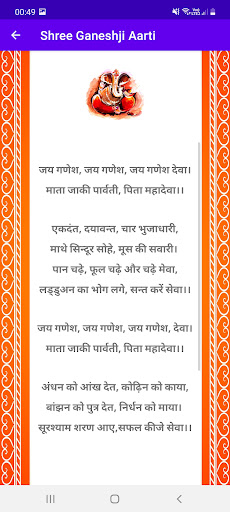 00:49
Shree Ganeshji Aarti
जय गणेश, जय गणेश, जय गणेश देवा।
माता जाकी पार्वती, पिता महादेवा।।
एकदंत, दयावन्त, चार भुजाधारी,
माथे सिन्दूर सोहे, मूस की सवारी।
पान चढ़े, फूल चढ़े और चढ़े मेवा,
लड्डुअन का भोग लगे, सन्त करें सेवा।।
जय गणेश, जय गणेश, जय गणेश, देवा।
माता जाकी पार्वती, पिता महादेवा।।
अंधन को आंख देत, कोढ़िन को काया,
बांझन को पुत्र देत, निर्धन को माया।
सूरश्याम शरण आए,सफल कीजे सेवा।।